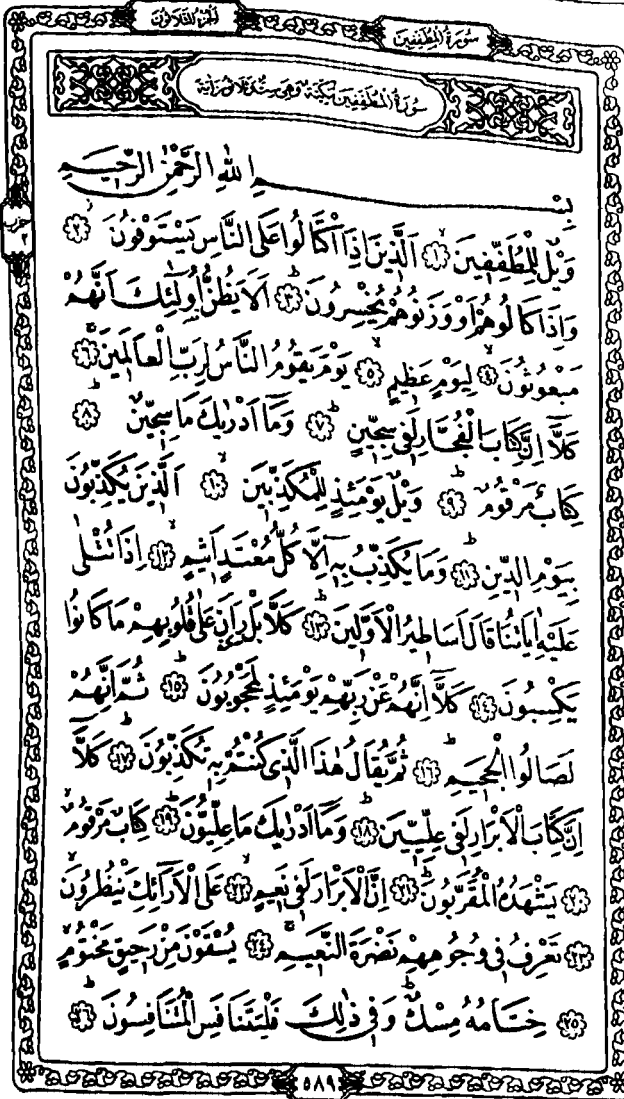 سُورَةُ الْمُطَفِّفِينَ
الجزء الثلاثون
سُورَةُ الْمُطَفِّفِينَ مَكِّيَّةٌ وَهِيَ سِتٌّ وَثَلَاثُونَ اٰيَةً
حزب
٢
بِسْمِ اللّٰهِ الرَّحْمٰنِ الرَّحِيمِ
وَيْلٌ لِلْمُطَفِّفِينَۙ ﴿١﴾ اَلَّذِينَ اِذَا اكْتَالُوا عَلَى النَّاسِ يَسْتَوْفُونَۙ ﴿٢﴾
وَاِذَا كَالُوهُمْ اَوْ وَزَنُوهُمْ يُخْسِرُونَۜ ﴿٣﴾ اَلَا يَظُنُّ اُو۬لٰٓئِكَ اَنَّهُمْ
مَبْعُوثُونَۙ ﴿٤﴾ لِيَوْمٍ عَظِيمٍۙ ﴿٥﴾ يَوْمَ يَقُومُ النَّاسُ لِرَبِّ الْعَالَمِينَۜ ﴿٦﴾
كَلَّٓا اِنَّ كِتَابَ الْفُجَّارِ لَفِي سِجِّينٍۜ ﴿٧﴾ وَمَٓا اَدْرٰيكَ مَا سِجِّينٌۜ ﴿٨﴾
كِتَابٌ مَرْقُومٌۜ ﴿٩﴾ وَيْلٌ يَوْمَئِذٍ لِلْمُكَذِّبِينَۙ ﴿١٠﴾ اَلَّذِينَ يُكَذِّبُونَ
بِيَوْمِ الدِّينِۜ ﴿١١﴾ وَمَا يُكَذِّبُ بِهٖٓ اِلَّا كُلُّ مُعْتَدٍ اَثِيمٍۙ ﴿١٢﴾ اِذَا تُتْلٰى
عَلَيْهِ اٰيَاتُنَا قَالَ اَسَاطِيرُ الْاَوَّلِينَۜ ﴿١٣﴾ كَلَّا بَلْ رَانَ عَلٰى قُلُوبِهِمْ مَا كَانُوا
يَكْسِبُونَ ﴿١٤﴾ كَلَّٓا اِنَّهُمْ عَنْ رَبِّهِمْ يَوْمَئِذٍ لَمَحْجُوبُونَۜ ﴿١٥﴾ ثُمَّ اِنَّهُمْ
لَصَالُوا الْجَحِيمِۜ ﴿١٦﴾ ثُمَّ يُقَالُ هٰذَا الَّذِي كُنْتُمْ بِهٖ تُكَذِّبُونَۜ ﴿١٧﴾ كَلَّٓا
اِنَّ كِتَابَ الْاَبْرَارِ لَفِي عِلِّيِّينَۜ ﴿١٨﴾ وَمَٓا اَدْرٰيكَ مَا عِلِّيُّونَۜ ﴿١٩﴾ كِتَابٌ مَرْقُومٌۙ
﴿٢٠﴾ يَشْهَدُهُ الْمُقَرَّبُونَۜ ﴿٢١﴾ اِنَّ الْاَبْرَارَ لَفِي نَعِيمٍۙ ﴿٢٢﴾ عَلَى الْاَرَٓائِكِ يَنْظُرُونَۙ
﴿٢٣﴾ تَعْرِفُ فِي وُجُوهِهِمْ نَضْرَةَ النَّعِيمِۚ ﴿٢٤﴾ يُسْقَوْنَ مِنْ رَحِيقٍ مَخْتُومٍۙ
﴿٢٥﴾ خِتَامُهُ مِسْكٌۜ وَفِي ذٰلِكَ فَلْيَتَنَافَسِ الْمُتَنَافِسُونَۜ ﴿٢٦﴾
٥٨٩